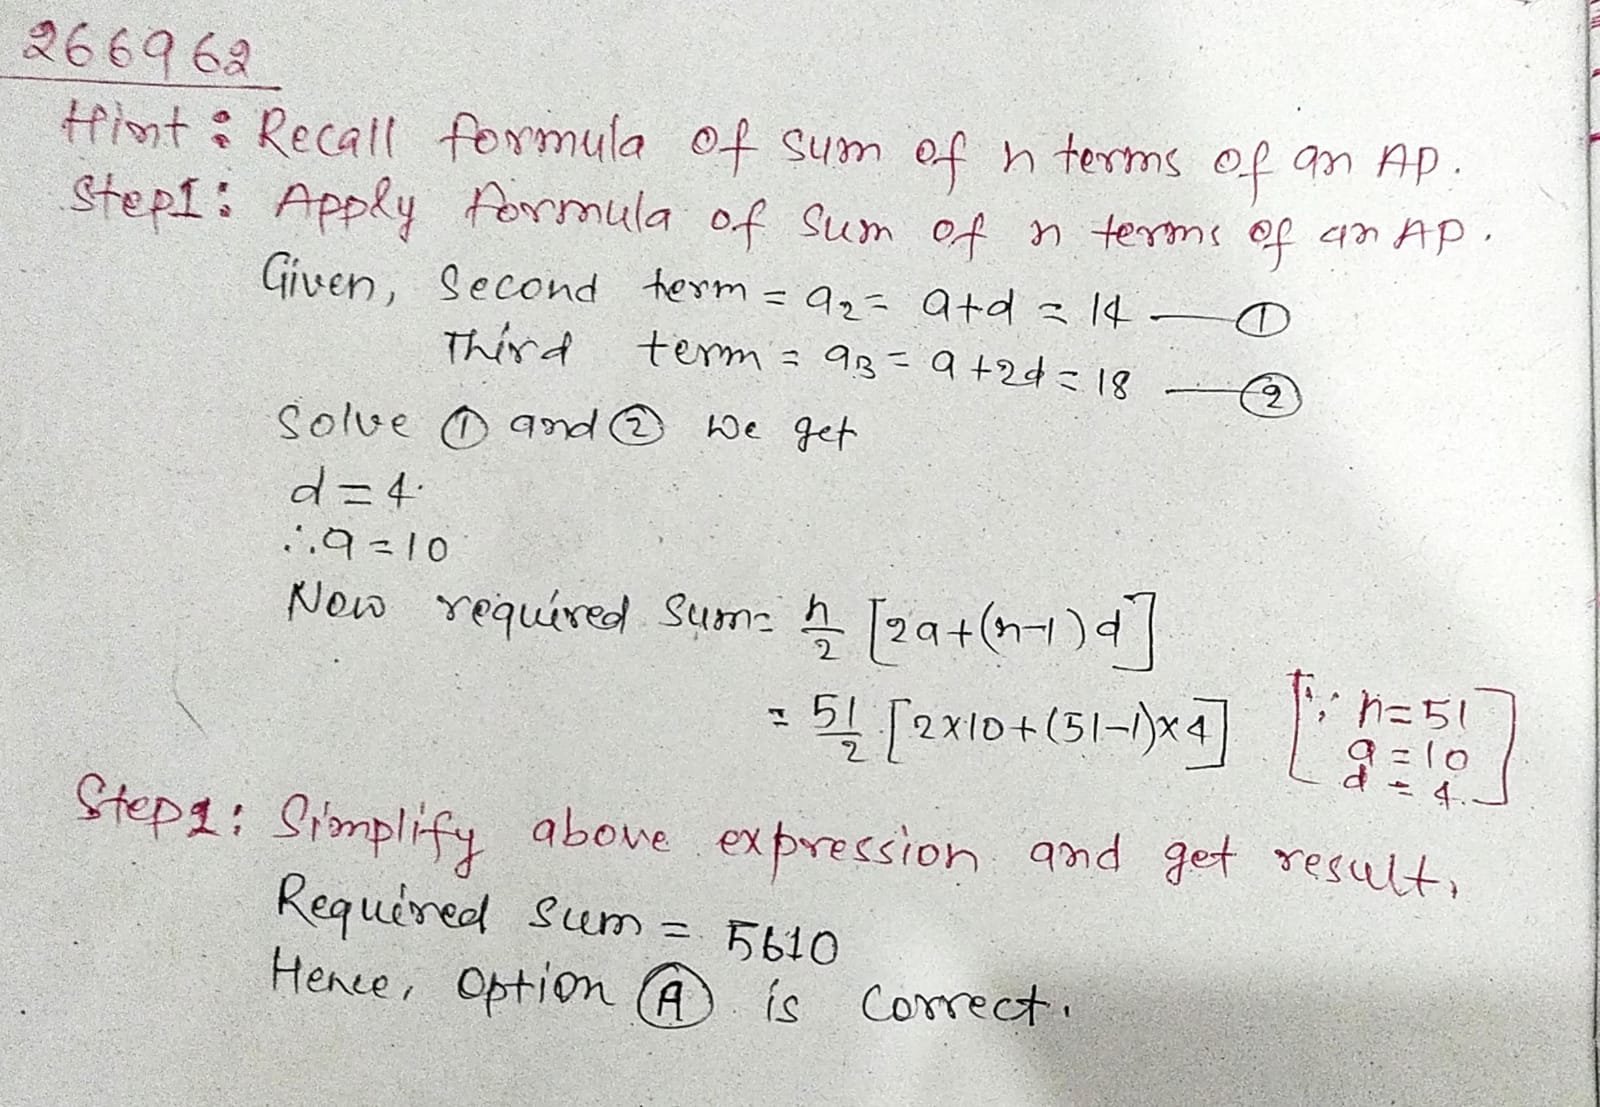 266962
Hint : Recall formula of sum of n terms of an AP.
Step1: Apply formula of sum of n terms of an AP.
Given, Second term = a₂ = a+d = 14 —— ①
Third term = a₃ = a+2d = 18 —— ②
Solve ① and ② we get
d = 4.
∴ a = 10
Now required sum = n/2 [2a+(n-1)d]
= 51/2 [2×10+(51-1)×4] [∵ n=51
a = 10
d = 4.]
Step2: Simplify above expression and get result,
Required sum = 5610
Hence, option Ⓐ is correct.